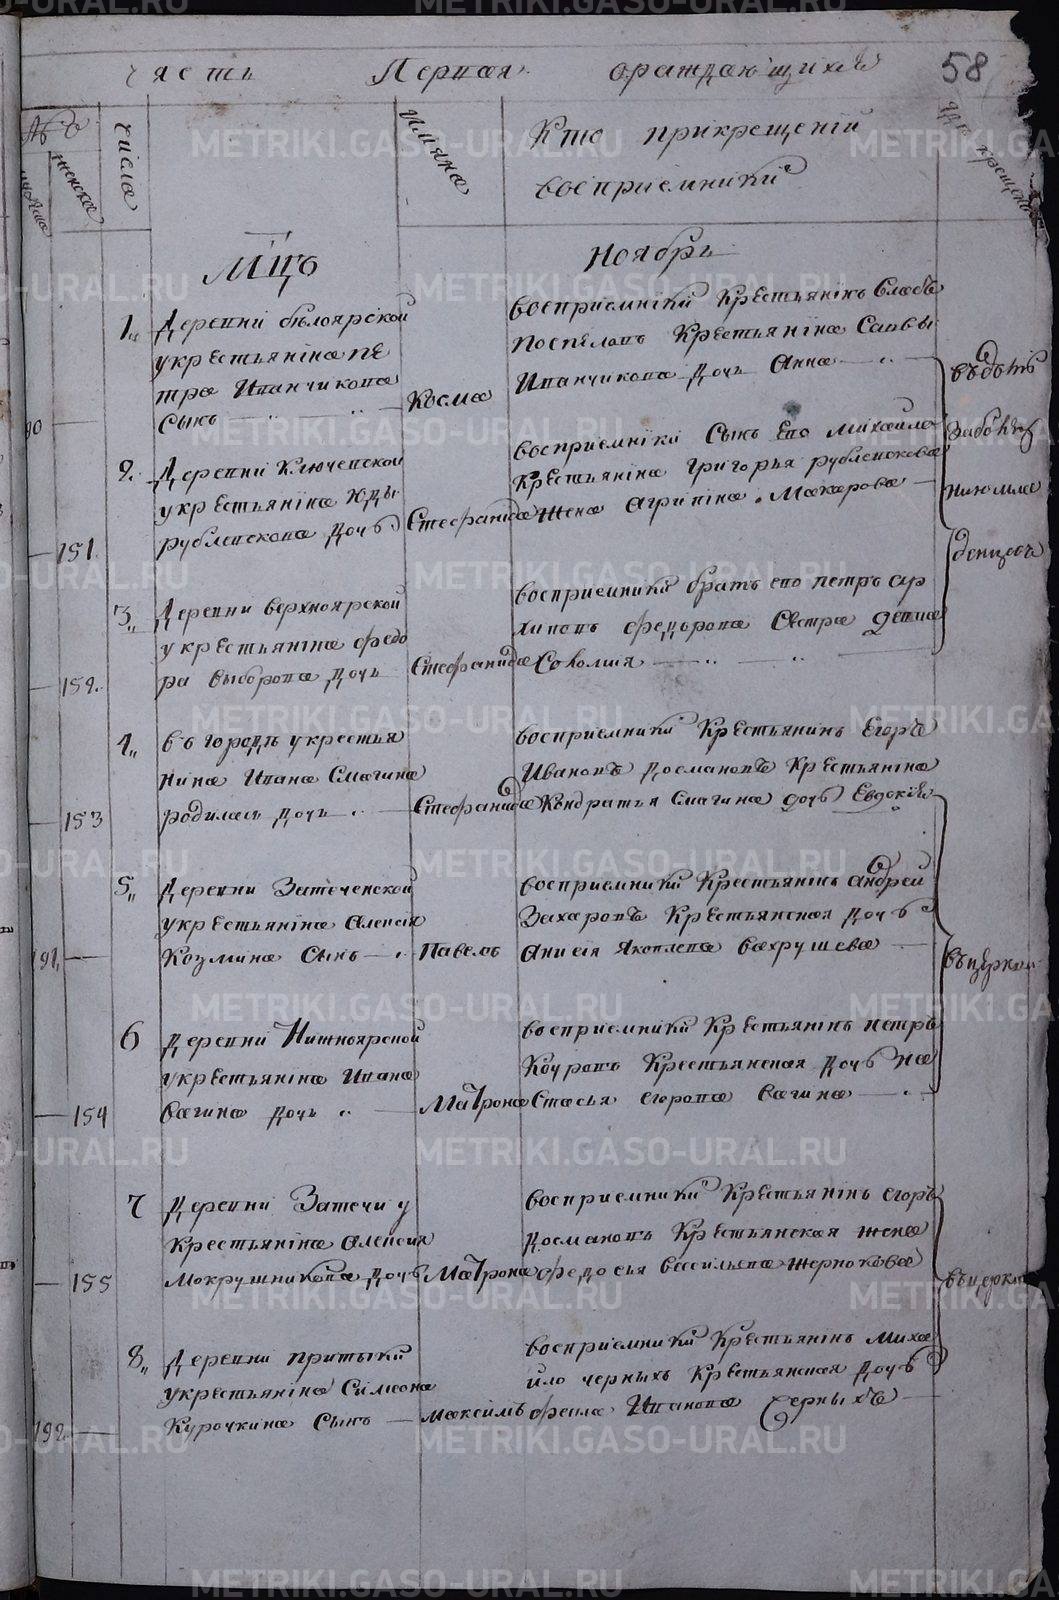 Часть Первая ораждающихся 58
№
мужска
женска
числа
Имяна
Кто прикрещении
восприемники
где крещены
Мцъ Ноябрь
1„ Деревни белоярской
укрестьянина Пе
тра Иванчикова
сынъ
Косма
восприемники Крестьянинъ Глебъ
Поспеловъ Крестьянина Саввы
Иванчикова дочь Анна
190
2. Деревни Ключевской
укрестьянина Иуды
рублевскова дочь
Стефанида
восприемники сынъ Его Михайло
Крестьянина Григорья рублевскова
жена Агрипина Макарова
151.
3„ Деревни верхноярской
укрестьянина федо
ра Выборова дочь
Стефанида
восприемники братъ его петръ ар
хиповъ федорова Сестра девица
Соломия
152.
4„ въ городе укрестья
нина Ивана Смагина
родилась дочь
Стефанида
восприемники Крестьянинъ Егоръ
Ивановъ Досмановъ Крестьянина
Кондратья Смагина дочь Евдокия
153
5„ Деревни Затеченской
укрестьянина алексея
Козмина сынъ
Павелъ
восприемники Крестьянинъ андрей
Захаровъ Крестьянская дочь
Анисия Яковлева Вахрушева
191,
въцеркви
6 Деревни Нижноярской
укрестьянина Ивана
Вагина дочь
Матрона
восприемники Крестьянинъ петръ
Кочуровъ Крестьянская дочь На
стасья егорова Вагина
154
7 Деревни Затечи у
Крестьянина алексея
Мокрушникова дочь
Матрона
восприемники Крестьянинъ егоръ
Досмановъ Крестьянская жена
федосья васильева жернокова
155
въцеркви
8„ Деревни притыки
укрестьянина Симеона
Курочкина Сынъ
Максимъ
восприемники Крестьянинъ Миха
йло черныхъ Крестьянская дочь
фекла Иванова Черныхъ
192.
METRIKI.GASO-URAL.RU